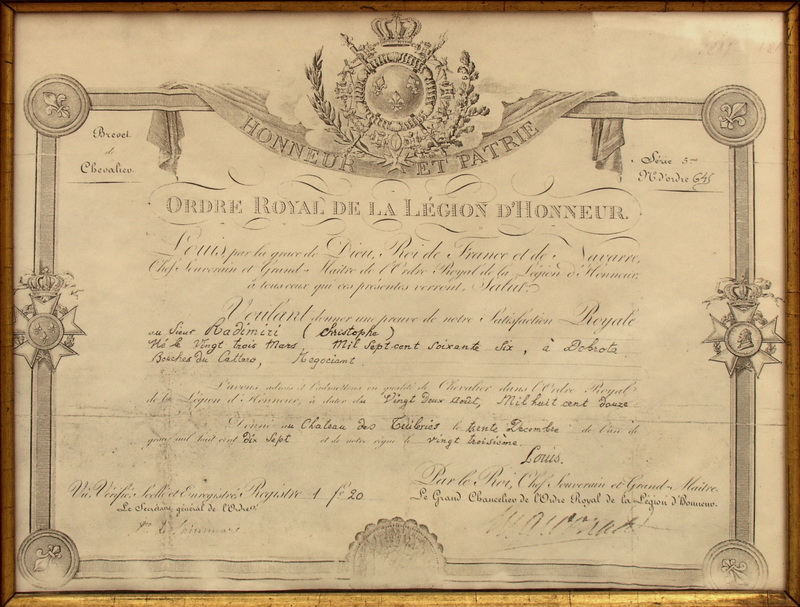 HONNEUR ET PATRIE
Brevet
de
Chevalier.
Série 5me
N. d'ordre 645
ORDRE ROYAL DE LA LÉGION D'HONNEUR.
Louis, par la grace de Dieu, Roi de France et de Navarre,
Chef Souverain et Grand-Maître de l'Ordre Royal de la Légion d'Honneur,
à tous ceux qui ces présentes verront, Salut.
Voulant donner une preuve de notre Satisfaction Royale
au Sieur Radimiri (Christophe)
Né le Vingt trois Mars, Mil Sept cent Soixante Six, à Dobrota
Bouches du Cattaro, Negociant
L'avons admis et en qualité de Chevalier dans l'Ordre Royal
de la Légion d'Honneur, à dater du Vingt Deux Août, Mil huit cent douze
Donné au Chateau des Tuileries le trente Decembre de l'an de
grace mil huit cent dix Sept et de notre règne le vingt troisième.
Louis.
Vu, Vérifié, Scellé et Enregistré, Registre 1 fo 20
Le Secrétaire général de l'Ordre
Par le Roi, Chef Souverain et Grand-Maître,
Le Grand Chancelier de l'Ordre Royal de la Légion d'Honneur.